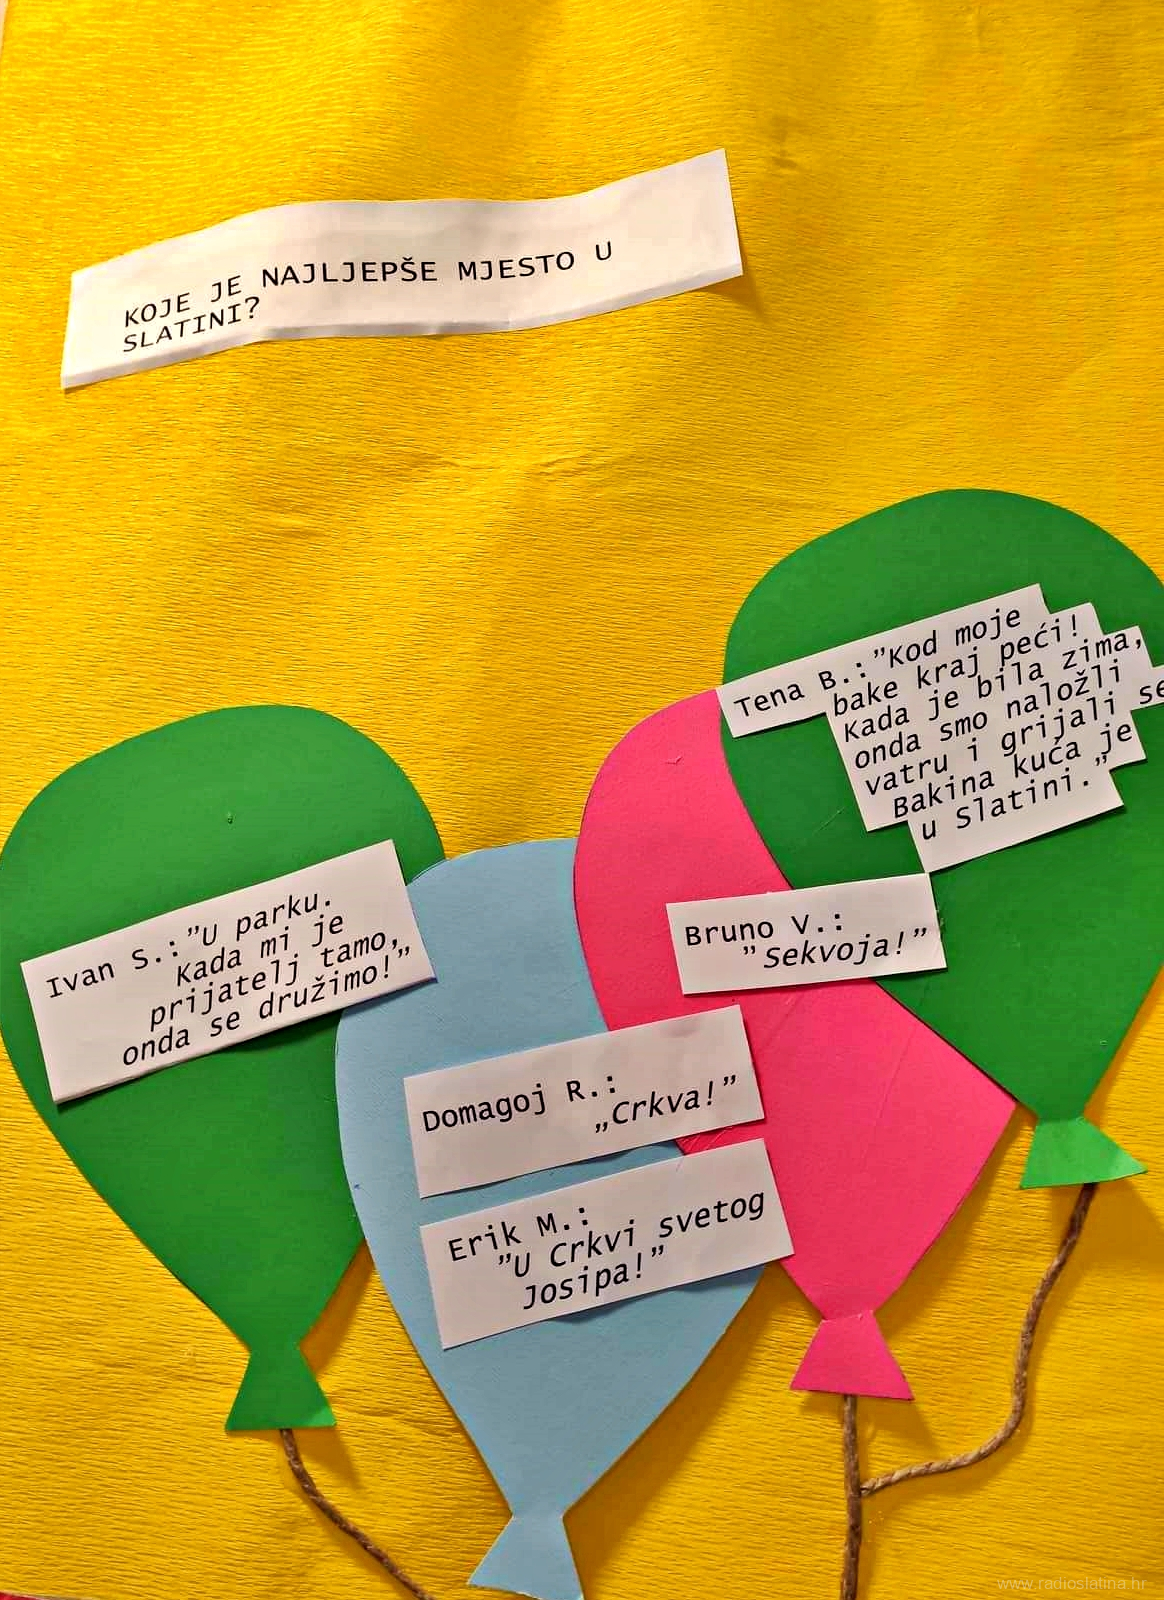 KOJE JE NAJLJEPŠE MJESTO U
SLATINI?
Tena B.:”Kod moje
bake kraj peći!
Kada je bila zima,
onda smo naložli
vatru i grijali se
Bakina kuća je
u Slatini.”
Ivan S.:”U parku.
Kada mi je
prijatelj tamo,
onda se družimo!„
Bruno V.:
”Sekvoja!”
Domagoj R.:
„Crkva!”
Erik M.:
”U Crkvi svetog
Josipa!”
www.radioslatina.hr